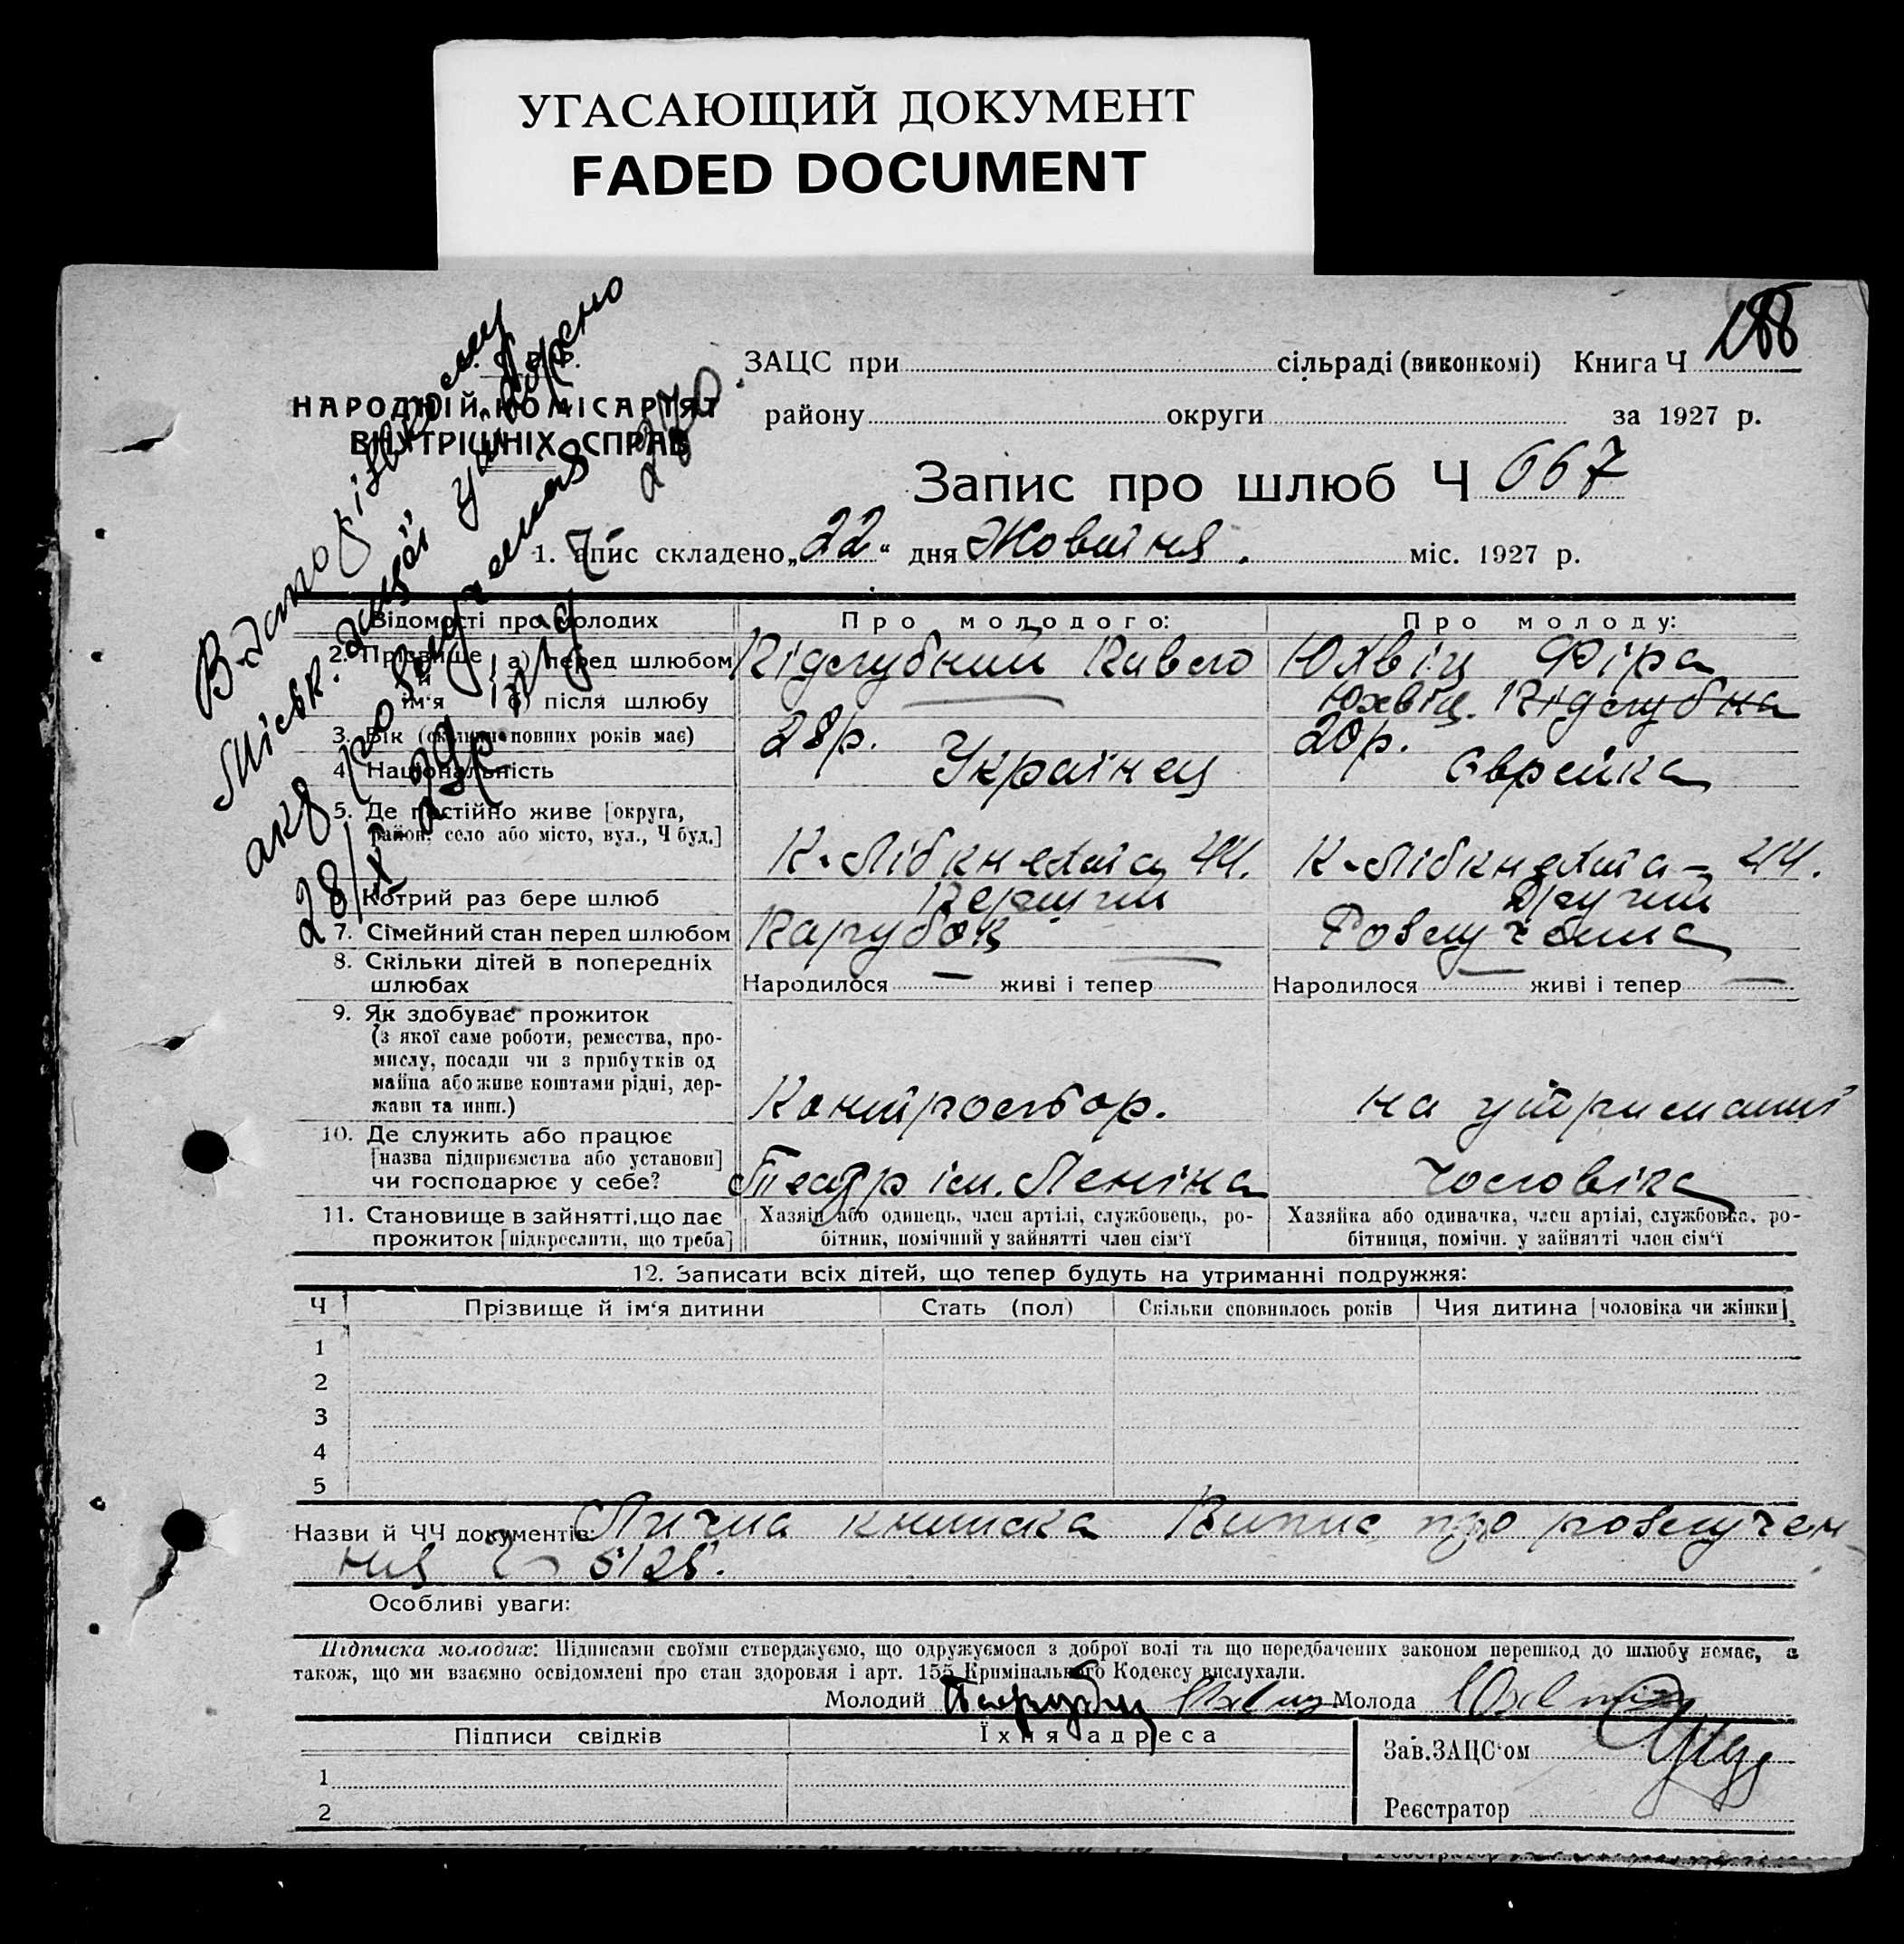 УГАСАЮЩИЙ ДОКУМЕНТ
FADED DOCUMENT
НАРОДНІЙ КОМІСАРІЯТ
ВНУТРІШНІХ СПРАВ
ЗАЦС при сільраді (виконкомі) Книга Ч
району округи за 1927 р.
Запис про шлюб Ч 667
1. Запис складено „22“ дня Жовтня міс. 1927 р.
Відомості про молодих Про молодого: Про молоду:
2. Прізвище й ім‘я
а) перед шлюбом Підлубний Павло Юхвіц Фіра
б) після шлюбу Юхвіц. Підлубна
3. Вік (скільки повних років має) 28р. 20р.
4. Національність Українец Єврейка
5. Де постійно живе [округа,
район, село або місто, вул., Ч буд.]
К-Лібкнехта 44. К-Лібкнехта - 44.
Котрий раз бере шлюб Перший Другий
7. Сімейний стан перед шлюбом Парубок Розлучена
8. Скільки дітей в попередніх
шлюбах Народилося — живі і тепер — Народилося — живі і тепер —
9. Як здобуває прожиток
(з якої саме роботи, ремества, про-
мислу, посади чи з прибутків од
майна або живе коштами рідні, дер-
жави та инш.) Контрольор. на утриманні
10. Де служить або працює
[назва підприємства або установи]
чи господарює у себе? Театр ім. Леніна чоловіка
11. Становище в зайнятті, що дає Хазяїн або одинець, член артілі, службовець, ро- Хазяйка або одиначка, член артілі, службовка, ро-
прожиток [підкреслити, що треба] бітник, помічний у зайнятті член сім‘ї бітниця, помічн. у зайнятті член сім‘ї
12. Записати всіх дітей, що тепер будуть на утриманні подружжя:
Ч Прізвище й ім‘я дитини Стать (пол) Скільки сповнилось років Чия дитина [чоловіка чи жінки]
1
2
3
4
5
Назви й ЧЧ документів: Лична книжка Випис про розлучен
ня
Особливі уваги:
Підписка молодих: Підписами своїми стверджуємо, що одружуємося з доброї волі та що передбачених законом перешкод до шлюбу немає, а
також, що ми взаємно освідомлені про стан здоровля і арт. 155 Кримінального Кодексу вислухали.
Молодий Молода
Підписи свідків Їхня адреса
Зав.ЗАЦС‘ом
1
2 Реєстратор